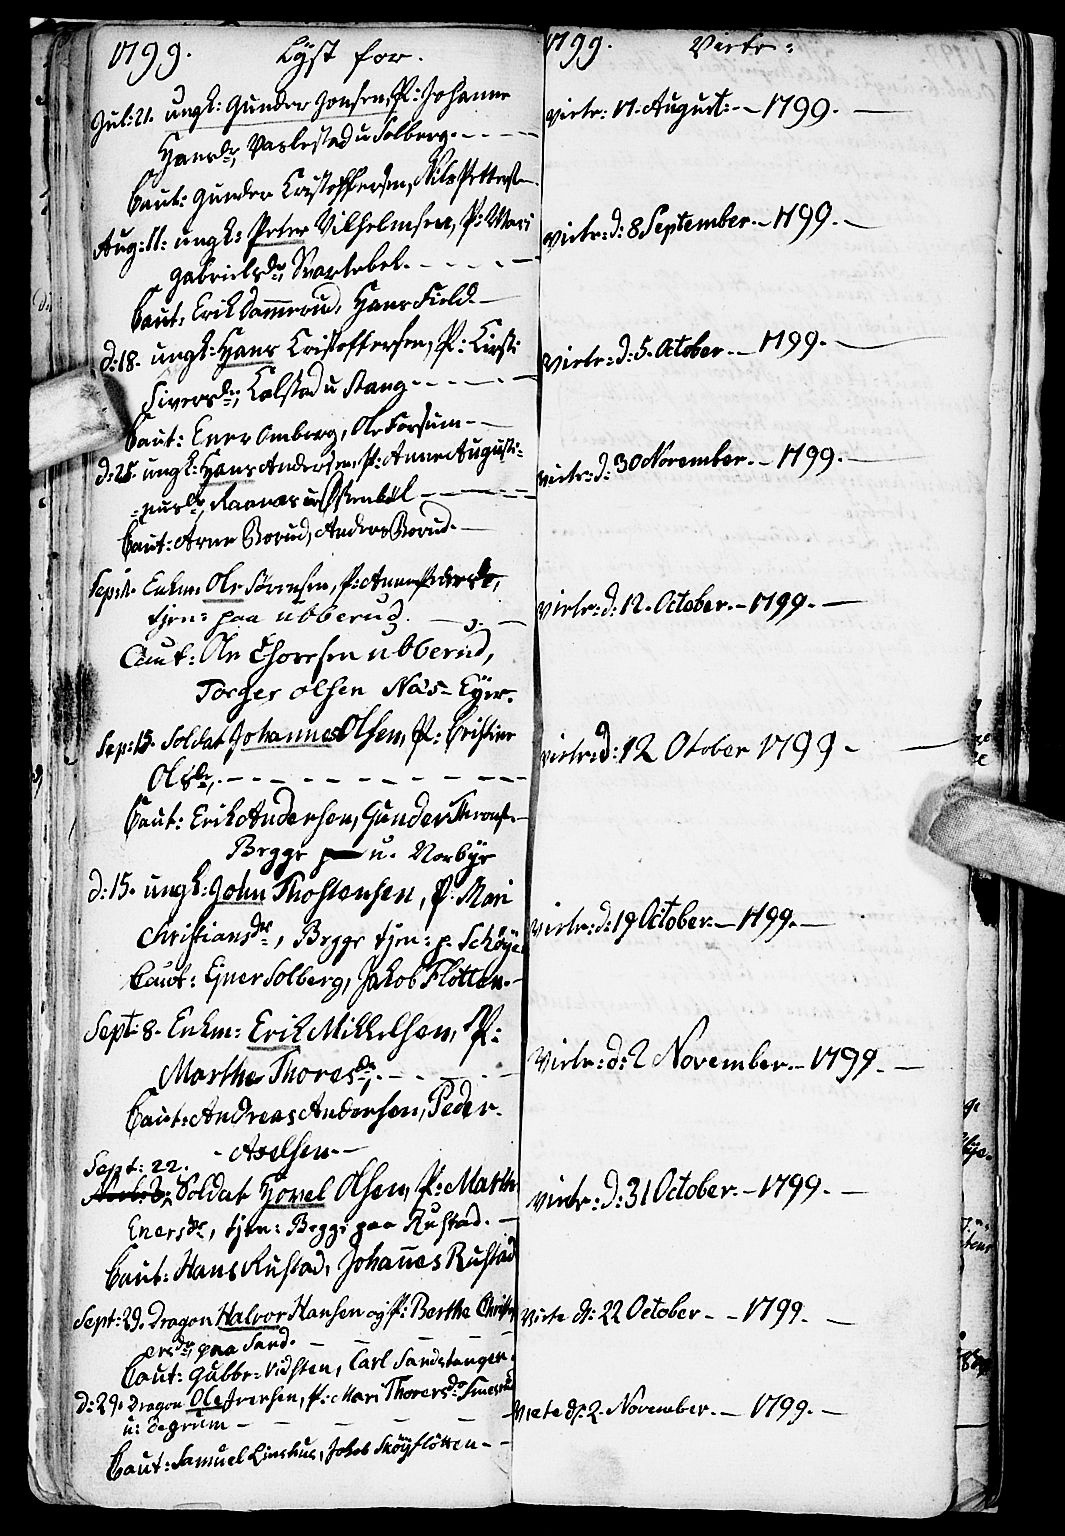 1799. Lyst for.
Jul: 21. ungk: Gunder Jonsen, P: Johanne
Hansdr, Vaslestad u Solberg.
Caut: Gunder Cristoffersen, Nils Pettersen
Aug: 11: ungk: Peter Vilhelmsen, P: Mari
Gabrielsdr, Svartebek.
Caut: Erik Dammerud, Hans Field.
d: 18. ungk: Hans Cristoffersen, P: Kirsti
Siversdr, Kalstad u Stang
Caut: Ener Omberg, Ole Forsum
d: 25. ungk: Hans Andersen, P: Anne Augusti-
-nusdr, Raanaas u Østenbøl
Caut: Arne Borud, Anders Borud.
Sep: 1. Enkm: Ole Sørensen, P: Anne Pedersdr,
tjen: paa Ubberud.
Caut: Ole Thoresen Ubberud,
Torger Olsen Næs-Eyer.
Sep: 15. Soldat Johannes Olsen, P: Cristine
Olsdr,
Caut: Erik Andersen, Gunder
Begge u. Norbye
d: 15. ungk: John Thostensen, P: Mari
Christiansdr, Begge tjen: p: Schøyen
Caut: Ejner Solberg, Jakob Flotten.
Sept: 8. Enkm: Erik Mikkelsen, P:
Marthe Thoresdr,
Caut: Andreas Andersen, Peder
Axelsen
Sept: 22.
Soldat Hovel Olsen, P: Marthe
Enersdr, tjen: Begge paa Rustad.
Caut: Hans Rustad, Johannes Rustad
Sept: 29. Dragon Halvor Hansen og P: Berthe Christ
ersdr, paa Sand.
Caut: Gubbe-Vidsten, Carl Sandstangen.
d: 29. Dragon Ole Iversen, P: Mari Thoresdr
u: Degrum
Caut: Samuel Linshus, Jakob Skøyflotten
1799. Viete:
Viete: 17. August: 1799.
Viete: d: 8 September. 1799.
Viete: d: 5. October. 1799.
Viete: d: 30 November. 1799.
Viete: d: 12. October. 1799.
Viete: d: 12 Otober 1799.
Viete: d: 19 October. 1799.
Viete: d: 2 November. 1799.
Viete: d: 31 October. 1799.
Viete d: 22 October 1799.
Viete d: 2. November. 1799.